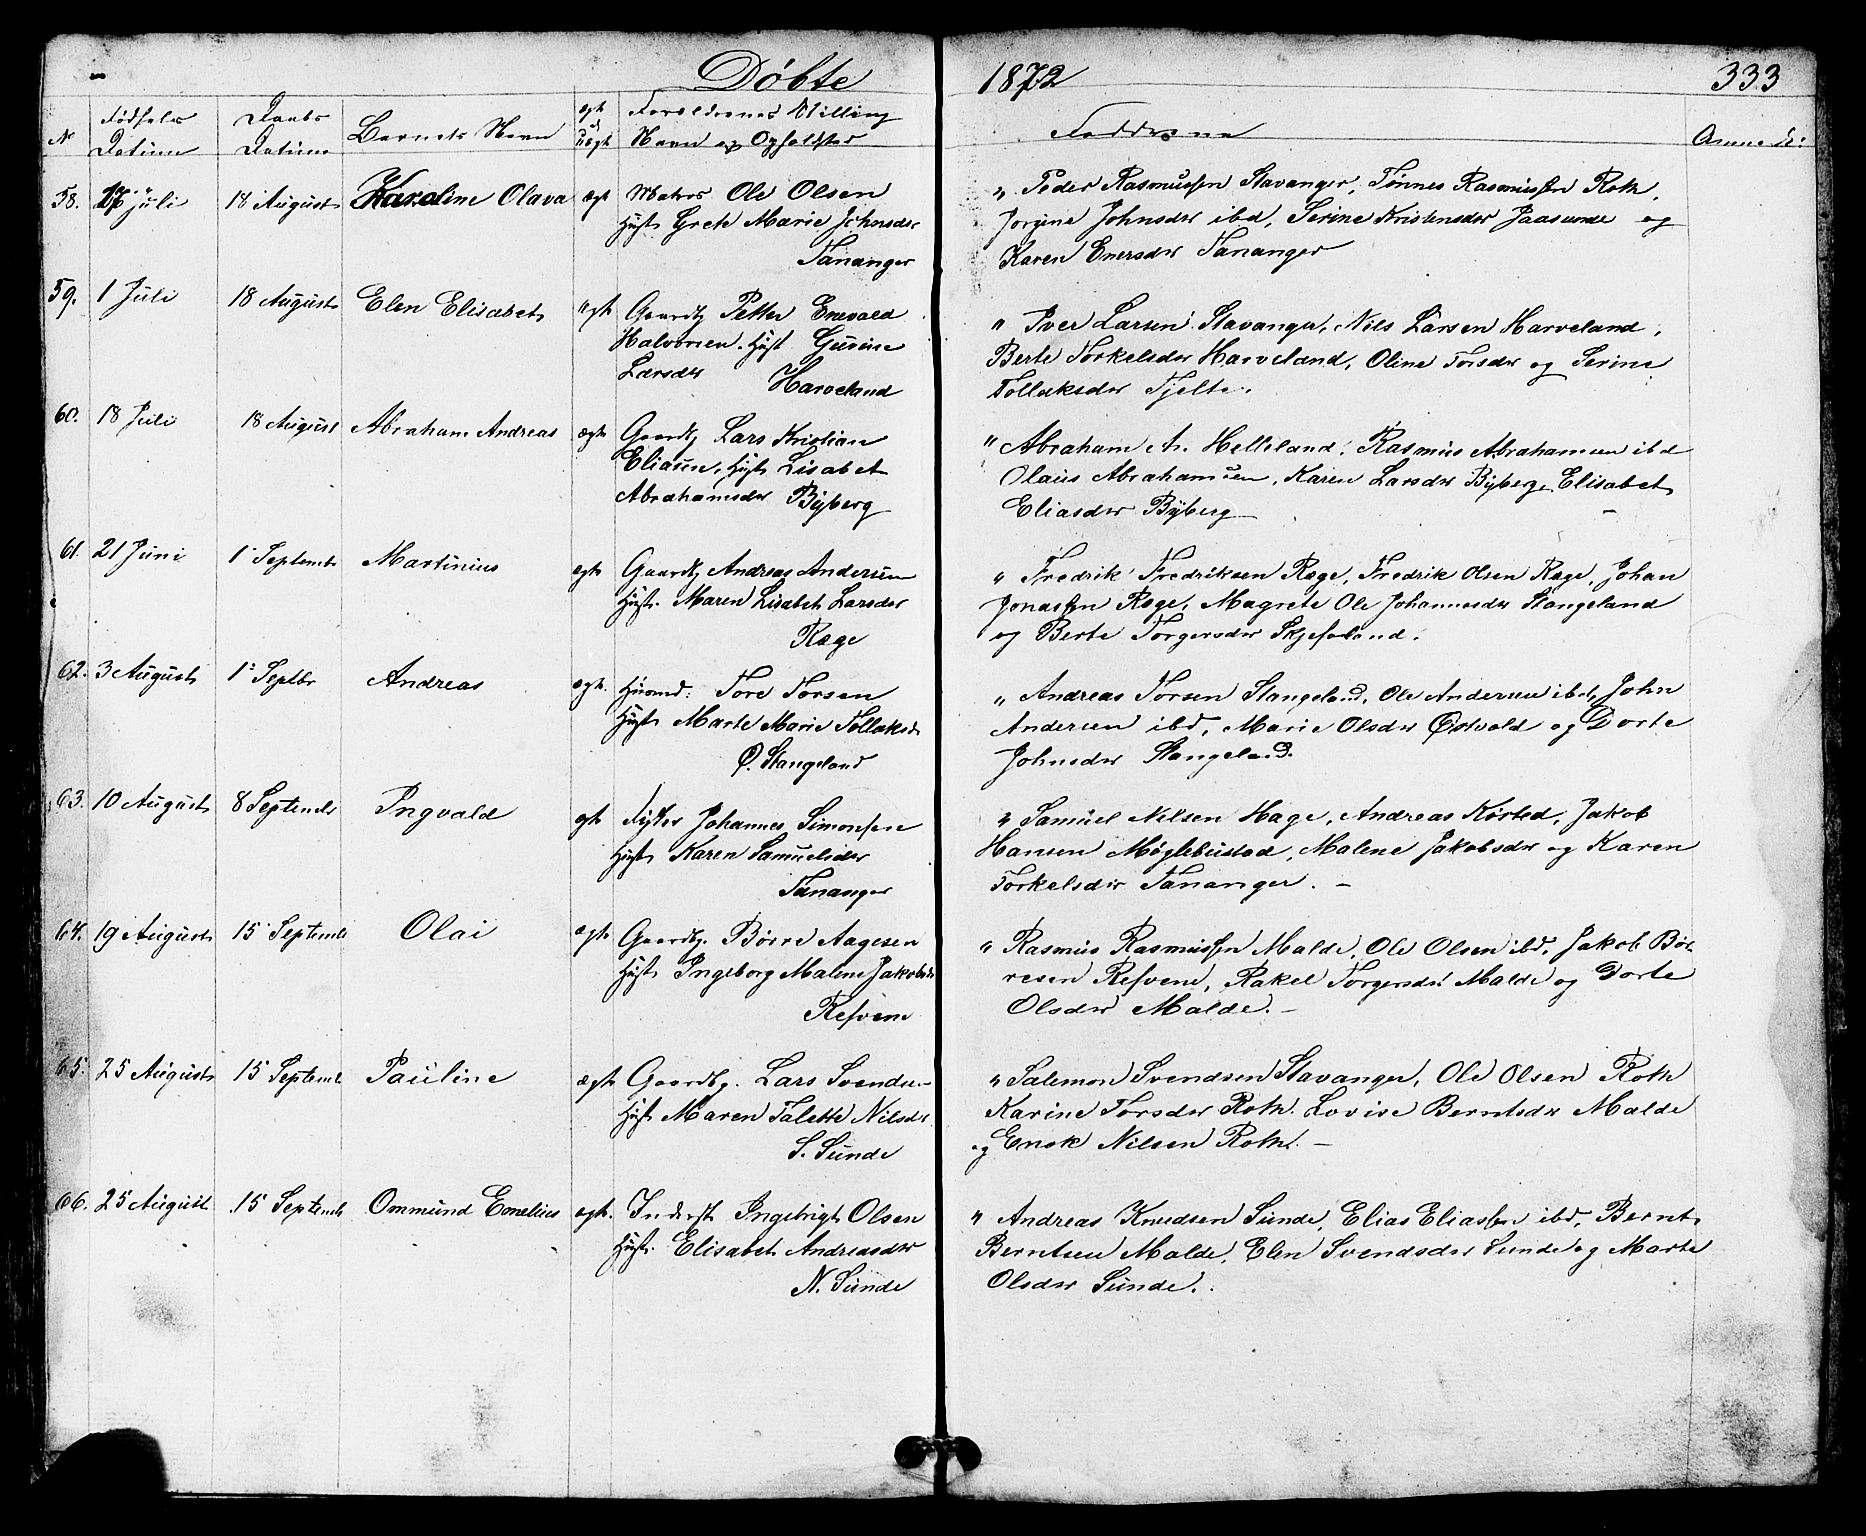 Döbte 1872 333
N Fødsels Datum Daabs Datum Barnets Navn ægt el uægt Foreldrenes Stilling Navn og Opholdster Faddrene Anmerk:
58. 17 Juli 18 August Karoline Olava ægt Matros Ole Olsen
Hust Grete Marie Johnsdtr
Tananger
" Peder Rasmussen Stavanger, Tønnes Rasmussen Roth,
Jorgine Johnsdtr ibd, Serine Kristensdtr Jaasunde og
Karen Enersdtr Tananger
59. 1 Juli 18 August Elen Elisabet ægt Gaardbr Petter Enevald
Halvorsen. Hust Gurine
Larsdtr Harveland
" Iver Larsen Stavanger, Nils Larsen Harveland,
Berte Torkelsdtr Harveland, Oline Torsdtr og Serine
Tollaksdtr Tjelte.
60. 18 Juli 18 August Abraham Andreas ægt Gaardbr Lars Kristian
Eliasen, Hust Lisabet
Abrahamsdtr Byberg
" Abraham A. Helleland, Rasmus Abrahamsen ibd
Olaus Abrahamsen, Karen Larsdtr Byberg, Elisabet
Eliasdtr Byberg
61. 21 Juni 1 Septemb Martinius ægt Gaardbr Andreas Andersen
Hust. Maren Lisabet Larsdtr
Ræge
" Fredrik Fredriksen Ræge, Fredrik Olsen Ræge, Johan
Jonassen Ræge, Magrete Ole Johannesdtr Stangeland
og Berte Torgersdtr Skjeseland.
62. 3 August 1 Septbr Andreas ægt. Husmd: Tore Torsen
Hust Marte Marie Tollaksd
Ø. Stangeland
" Andreas Torsen Stangeland, Ole Andersen ibd, John
Andersen ibd, Marie Olsdtr Østvold og Dorte
Johnsdtr Stangeland.
63. 10 August 8 Septembr Ingvald ægt Fisker Johannes Simonsen
Hust Karen Samuelsdtr
Tananger
" Samuel Nilsen Hage, Andreas Körted, Jakob
Hansen Møglebustad, Malene Jakobsdtr og Karen
Torkelsdtr Tananger. –
64. 19 August 15 Septemb Olai ægt Gaardbr. Börre Aagesen
Hust Ingeborg Malene Jakobsd
Refvem
" Rasmus Rasmussen Malde, Ole Olsen ibd, Jakob Bör-
resen Refvem, Rakel Torgersdtr Malde og Dorte
Olsdtr Malde. –
65. 25 August 15 Septemb Pauline ægt Gaardbr. Lars Svendsen
Hust Maren Talette Nilsdtr
S. Sunde
" Salemon Svendsen Stavanger, Ole Olsen Roth
Karine Torsdtr Roth. Lovise Berntsdtr Malde
og Enok Nilsen Roth. –
66. 25 August 15 Septemb Ommund Cornelius ægt. Inderst Ingebrigt Olsen
Hust. Elisabet Andreasdtr
N. Sunde
" Andreas Knudsen Sunde, Elias Eliassen ibd, Bernt
Berntsen Malde, Elen Svendsdtr Sunde og Marte
Olsdtr Sunde.